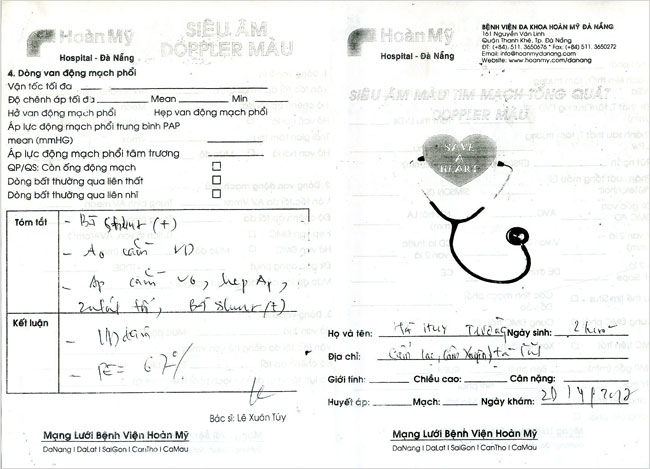 Hoàn Mỹ
Hospital - Đà Nẵng
SIÊU ÂM
DOPPLER MÀU
4. Dòng van động mạch phổi
Vận tốc tối đa
Độ chênh áp tối đa Mean Min
Hở van động mạch phổi Hẹp van động mạch phổi
Áp lực động mạch phổi trung bình PAP
mean (mmHG)
Áp lực động mạch phổi tâm trương
QP/QS: Còn ống động mạch
Dòng bất thường qua liên thất
Dòng bất thường qua liên nhĩ
Tóm tắt
- Bở shunt (+)
- Ao cắm VD
- Ap cắm
Bở shunt (+)
Kết luận
-
- PE = 67%
Bác sĩ: Lê Xuân Túy
Mạng Lưới Bệnh Viện Hoàn Mỹ
DaNang I DaLat I SaiGon I CanTho I CaMau
Hoàn Mỹ
Hospital - Đà Nẵng
BỆNH VIỆN ĐA KHOA HOÀN MỸ ĐÀ NẴNG
161 Nguyễn Văn Linh
Quận Thanh Khê, Tp. Đà Nẵng
ĐT: (+84). 511. 3650676 * Fax: (+84) 511. 3650272
Email: info@hoanmydanang.com
Website: www.hoanmy.com/danang
SIÊU ÂM MÀU TIM MẠCH TỔNG QUÁT
DOPPLER MÀU
SAVE
A
HEART
Họ và tên: Hà Huy Trường Ngày sinh: 2
Địa chỉ: Cẩm Lạc, Cẩm Xuyên, Hà Tĩnh
Giới tính: Chiều cao: Cân nặng:
Huyết áp: Mạch: Ngày khám: 20/4/2012
Mạng Lưới Bệnh Viện Hoàn Mỹ
DaNang I DaLat I SaiGon I CanTho I CaMau